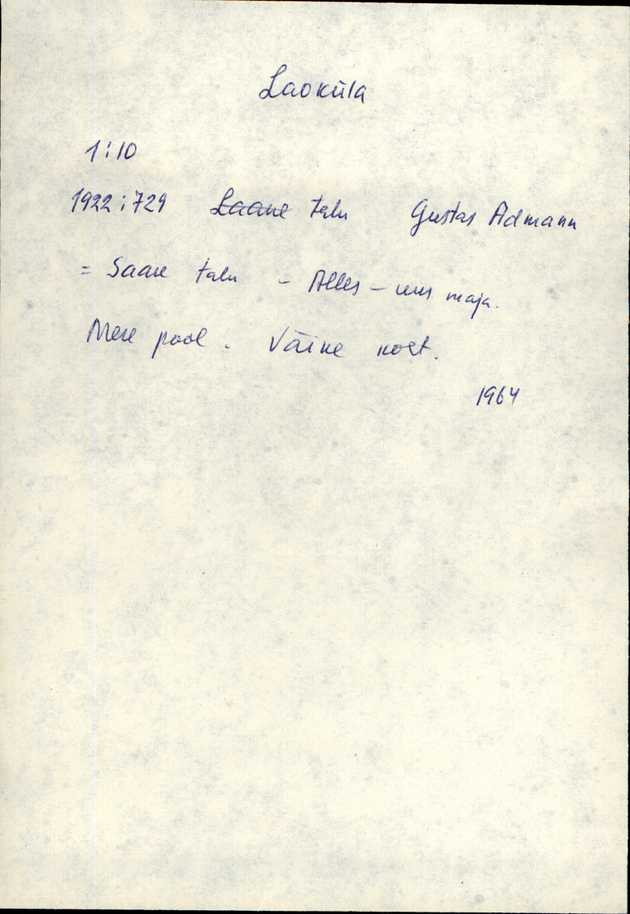 Laoküla
1:10
1922:729 Laane talu Gustas Admann
= Saare talu - Alles - uus maja.
Mere pool. Väike koht.
1964